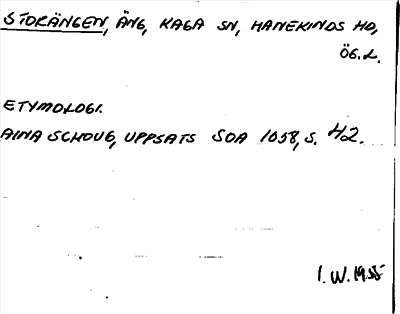 STORÄNGEN, ÄNG, KAGA SN, HANEKINDS HD,
ÖG.L.
ETYMOLOGI.
AINA SCHOUG, UPPSATS SOA 1058, S. 42.
I. W. 1955